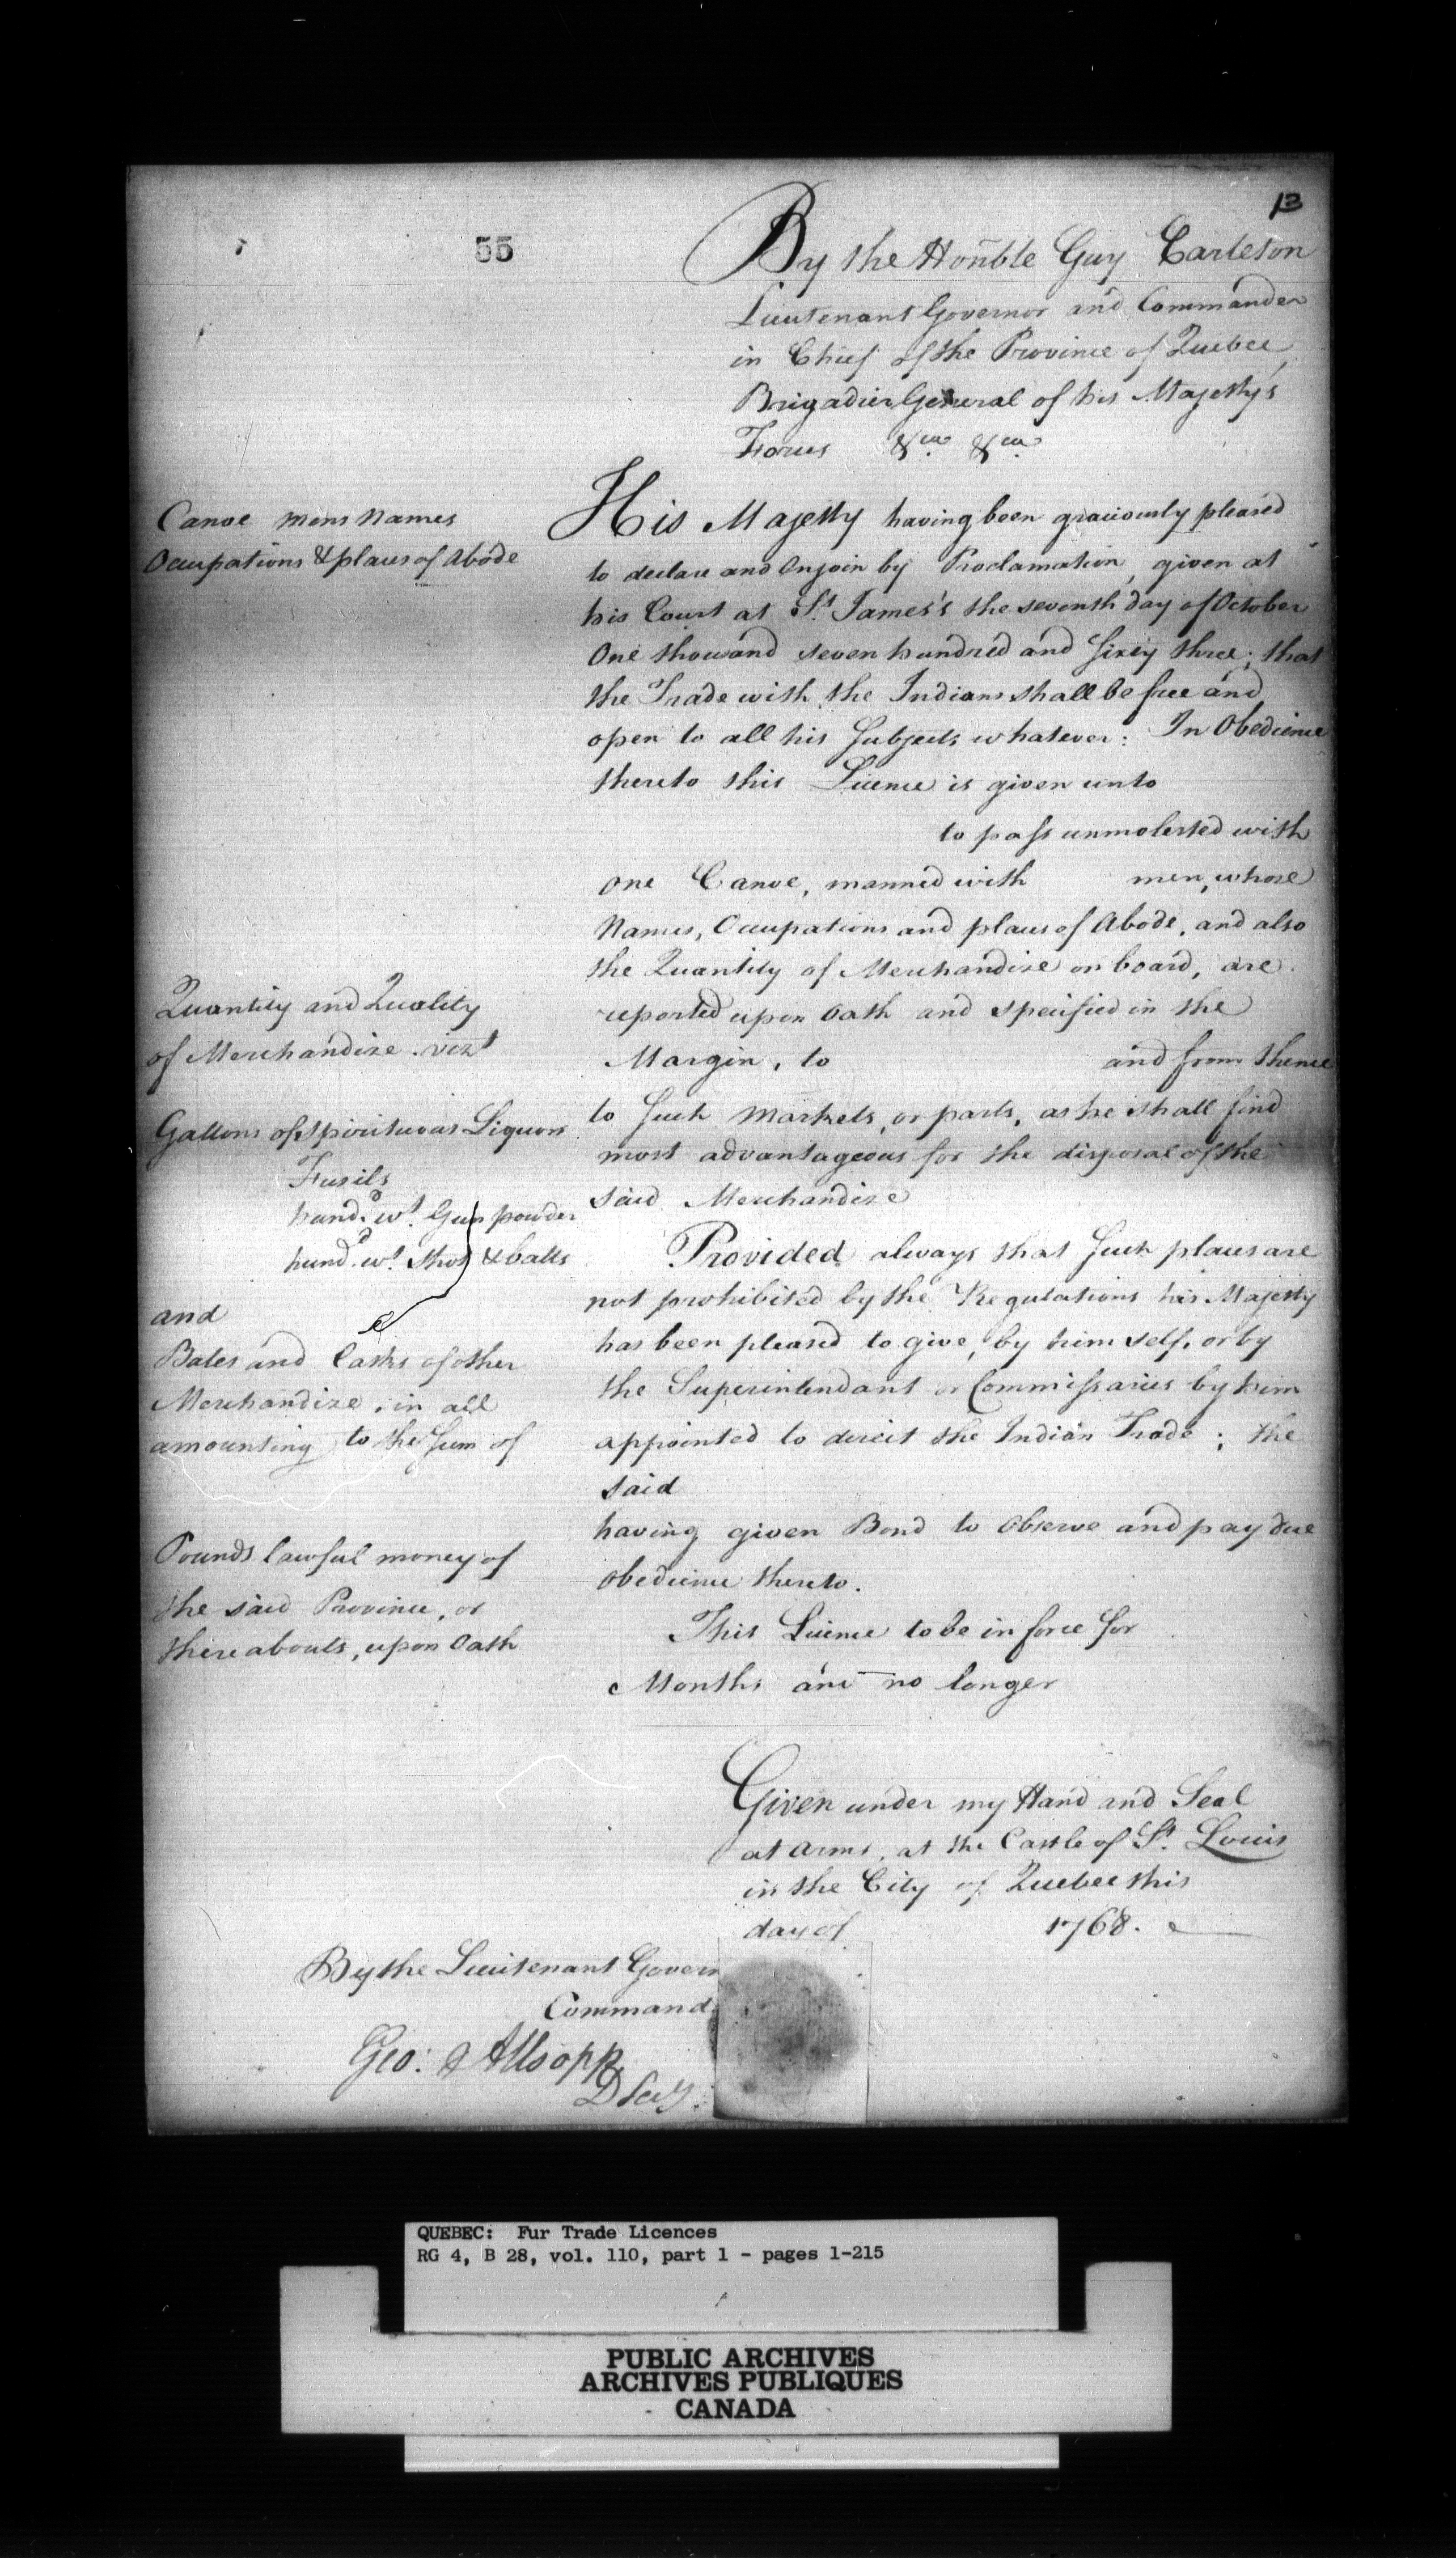 13
55
By the Hoñble Guy Carleton
Lieutenant Governor and Commander
in Chief of the Province of Quebec,
Brigadier General of his Majesty's
Forces &ca. &ca.
Canoe mens Names
Occupations & places of Abode
His Majesty having been graciously pleased
to declare and Enjoin by Proclamation, given at
his Court at St. James's the seventh day of October
One thousand seven hundred and Sixty three; that
the Trade with the Indians shall be free and
open to all his Subjects whatever: In Obedience
thereto this Licence is given unto
to pass unmolested with
one Canoe, manned with men, whose
Names, Occupations and places of Abode, and also
the Quantity of Merchandize on board, are
reported upon Oath and specified in the
Margin, to and from thence
to Such Markets, or parts, as he shall find
most advantageous for the disposal of the
said Merchandize
Provided always that Such places are
not prohibited by the Regulations his Majesty
has been pleased to give, by himself, or by
the Superintendant or Commissaries by him
appointed to direct the Indian Trade; the
said
having given Bond to Observe and pay due
obedience thereto.
This Licence to be in force for
Months and no longer
Quantity and Quality
of Merchandize. vizt
Gallons of Spirituous Liquors
Fusils
hund.d wt. Gun powder
hund.d wt. Shot & balls
and
Bales and Casks of other
Merchandize, in all
amounting to the Sum of
Pounds lawful money of
the said Province, or
thereabouts, upon Oath
Given under my Hand and Seal
at Arms, at the Castle of St. Louis
in the City of Quebec this
day of 1768.
By the Lieutenant Govern
Command.
Geo: Allsopp
D Secy.
QUEBEC: Fur Trade Licences
RG 4, B 28, vol. 110, part 1 - pages 1-215
PUBLIC ARCHIVES
ARCHIVES PUBLIQUES
CANADA